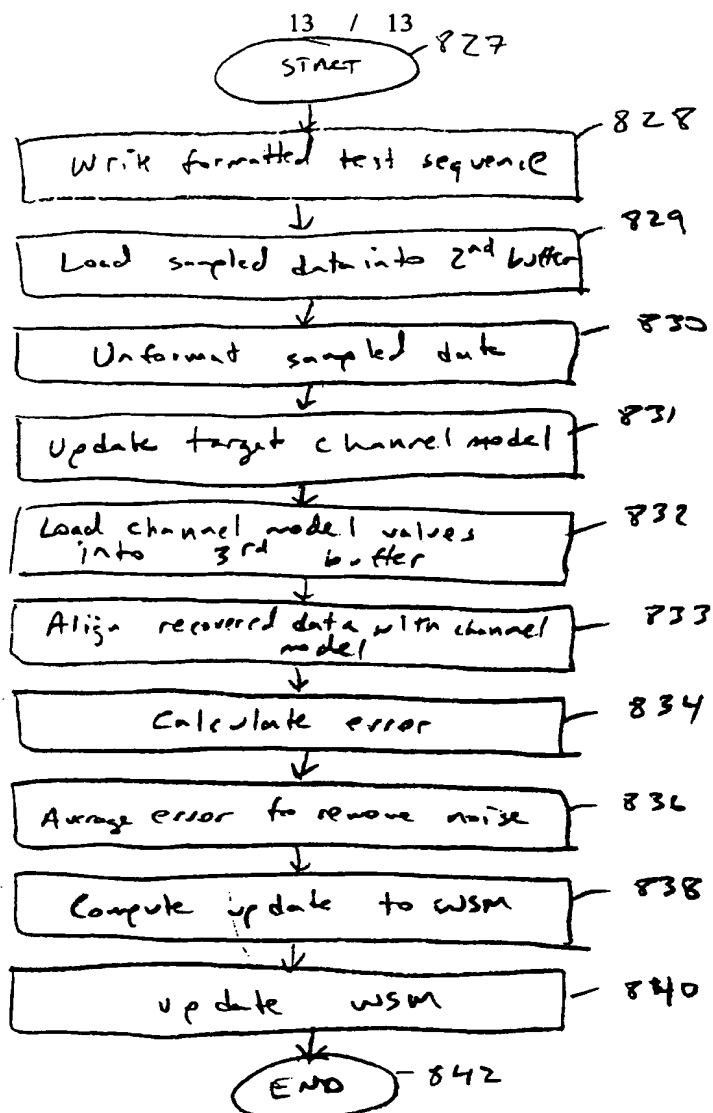 13 / 13
START
827
828
Write formatted test sequence
829
Load sampled data into 2nd buffer
830
Unformat sampled data
831
Update target channel model
832
Load channel model values
into 3rd buffer
833
Align recovered data with channel
model
834
Calculate error
836
Average error to remove noise
838
Compute update to WSM
840
update WSM
END
842